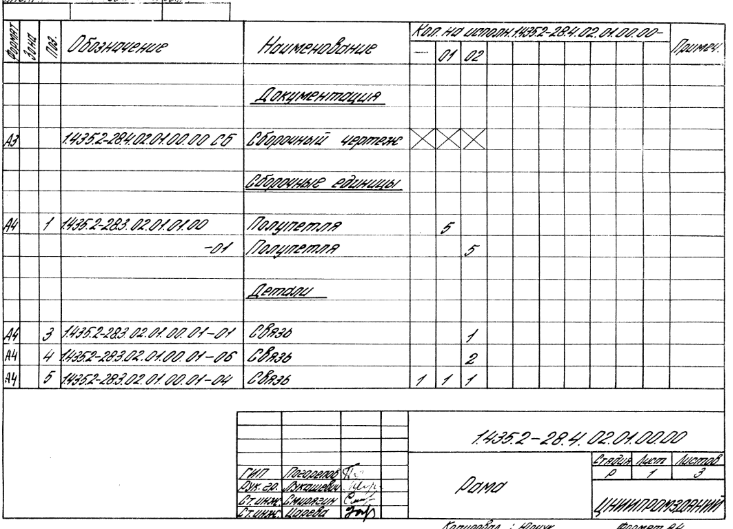 Формат Зона Поз. Обозначение Наименование Кол. на исполн. 1.435.2-28.4.02.01.00.00- Примеч.
— 01 02
Документация
А3 1.435.2-28.4.02.01.00.00 СБ Сборочный чертеж
Сборочные единицы
А4 1 1.435.2-28.3.02.01.01.00 Полупетля 5
-01 Полупетля 5
Детали
А4 3 1.435.2-28.3.02.01.00.01-01 Связь 1
А4 4 1.435.2-28.3.02.01.00.01-06 Связь 2
А4 5 1.435.2-28.3.02.01.00.01-04 Связь 1 1 1
1.435.2-28.4.02.01.00.00
ГИП
Рук. гр. Лукашевич
Ст. инж. Смирягин
Ст. инж. Царева
Рама
Стадия Лист Листов
Р 1 3
ЦНИИПРОМЗДАНИЙ
Копировал: Формат А4